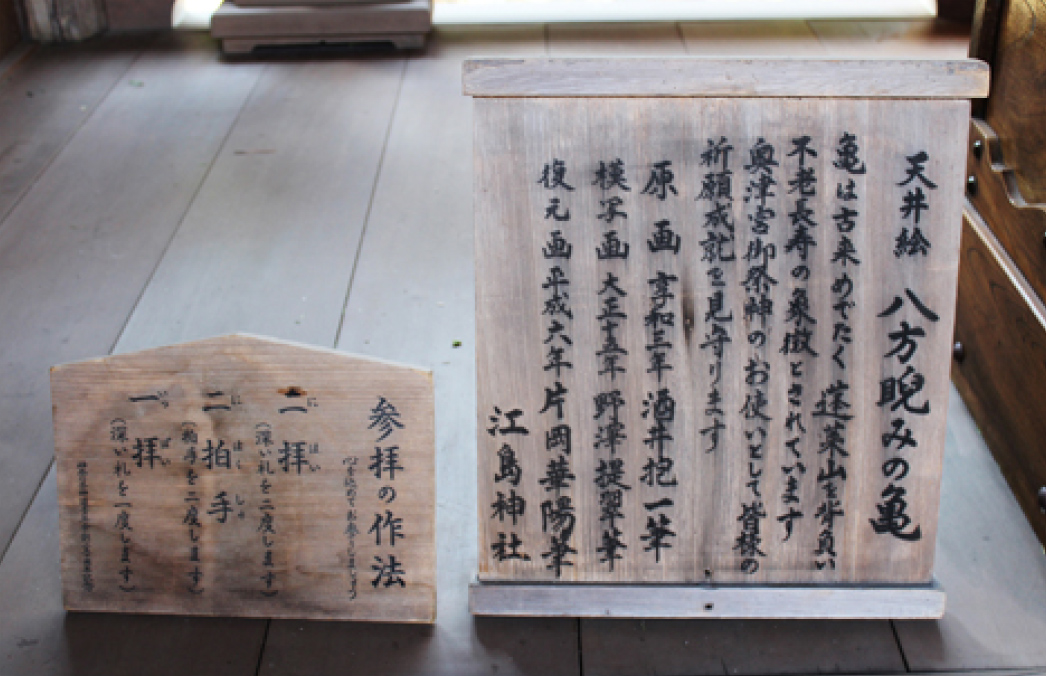 天井絵 八方睨みの亀
亀は古来めでたく蓬莱山を背負い
不老長寿の象徴とされています
奥津宮御祭神のお使いとして皆様の
祈願成就を見守ります
原画 享和三年 酒井抱一筆
模写画 大正十五年 野澤提翠筆
復元画 平成六年 片岡華陽筆
江島神社
参拝の作法
心を込めてお参りしましょう
二拝
にはい
(深い礼を二度します)
二拍手
にはくしゅ
(拍手を二度します)
一拝
いちはい
(深い礼を一度します)